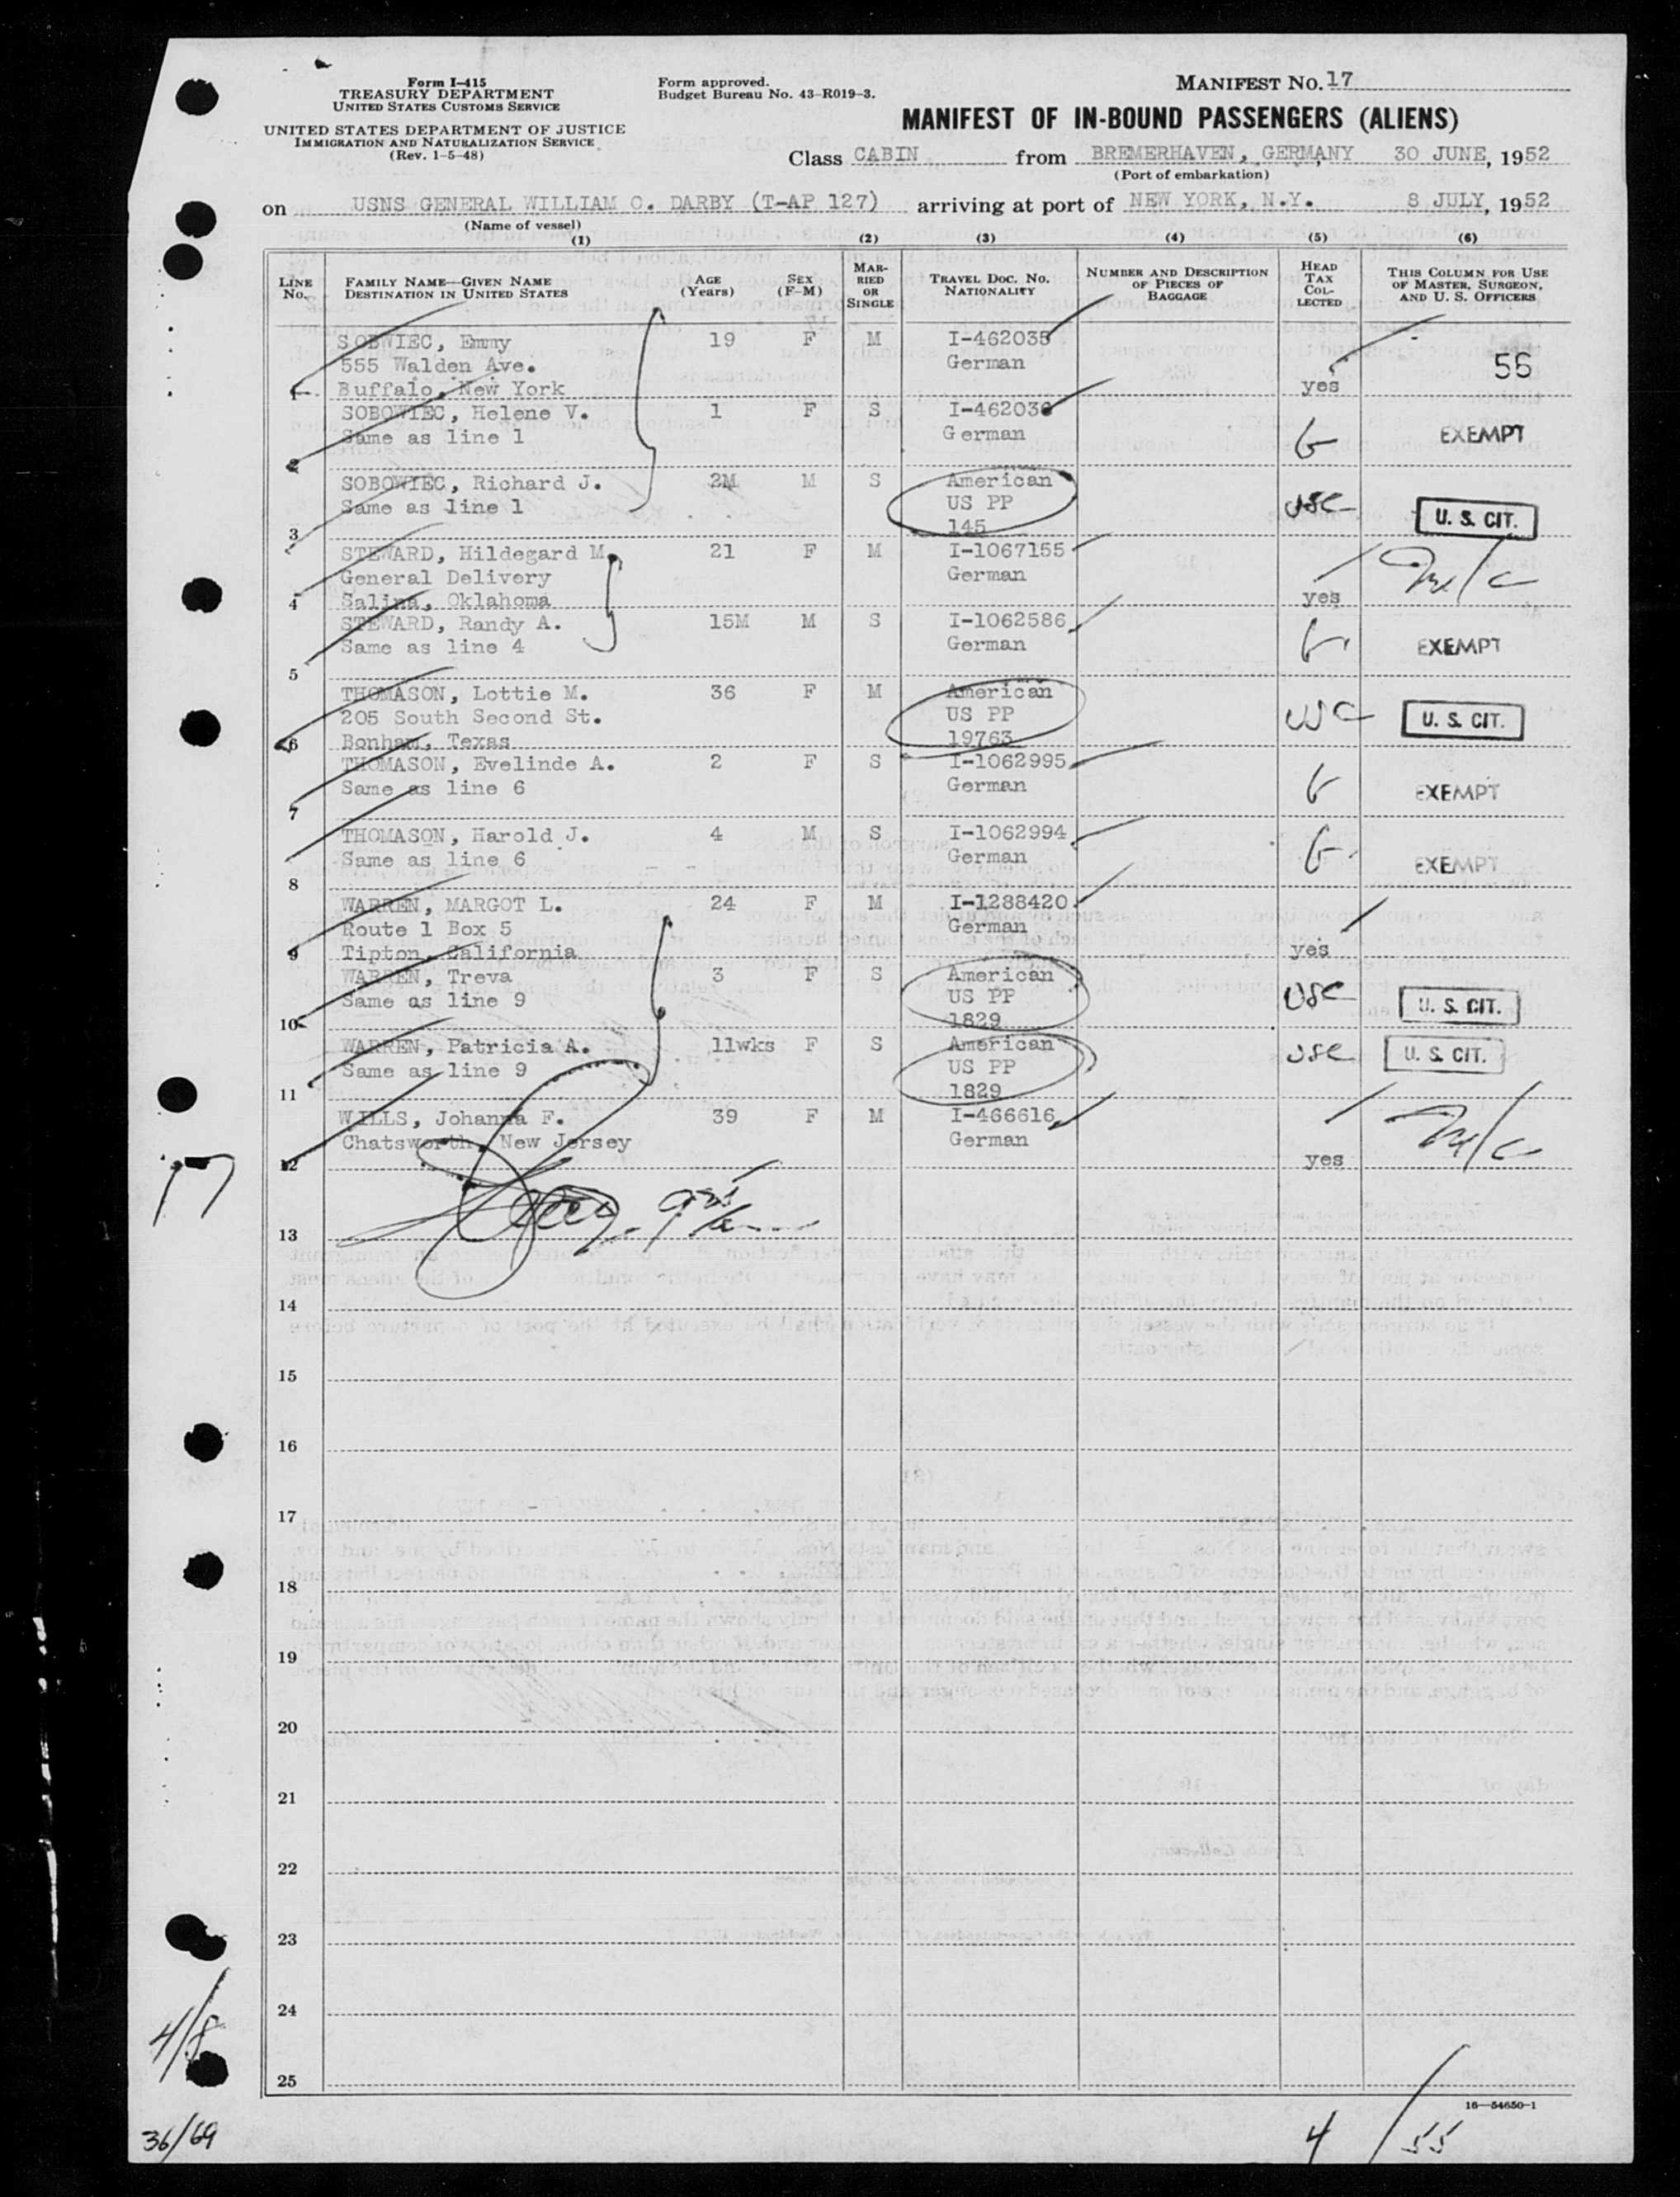 Form I-415
TREASURY DEPARTMENT
UNITED STATES CUSTOMS SERVICE
UNITED STATES DEPARTMENT OF JUSTICE
IMMIGRATION AND NATURALIZATION SERVICE
(Rev. 1-5-48)
Form approved.
Budget Bureau No. 43-R019-3.
MANIFEST NO. 17
MANIFEST OF IN-BOUND PASSENGERS (ALIENS)
Class CABIN from BREMERHAVEN, GERMANY 30 JUNE, 1952
(Port of embarkation)
on USNS GENERAL WILLIAM O. DARBY (T-AP 127) arriving at port of NEW YORK, N.Y. 8 JULY, 1952
(Name of vessel)
(1) (2) (3) (4) (5) (6)
LINE No. FAMILY NAME—GIVEN NAME DESTINATION IN UNITED STATES AGE (Years) SEX (F-M) MARRIED OR SINGLE TRAVEL DOC. NO. NATIONALITY NUMBER AND DESCRIPTION OF PIECES OF BAGGAGE HEAD TAX COLLECTED THIS COLUMN FOR USE OF MASTER, SURGEON, AND U. S. OFFICERS
SOBWIEC, Emmy 19 F M I-462035
555 Walden Ave. German 56
1 Buffalo, New York yes
SOBOWIEC, Helene V. 1 F S I-462036
Same as line 1 German EXEMPT
2
SOBOWIEC, Richard J. 2M M S American
Same as line 1 US PP USC U. S. CIT.
3 145
STEWARD, Hildegard M. 21 F M I-1067155
General Delivery German
4 Salina, Oklahoma yes
STEWARD, Randy A. 15M M S I-1062586
Same as line 4 German EXEMPT
5
THOMASON, Lottie M. 36 F M American
205 South Second St. US PP USC U. S. CIT.
6 Bonham, Texas 19763
THOMASON, Evelinde A. 2 F S I-1062995
Same as line 6 German EXEMPT
7
THOMASON, Harold J. 4 M S I-1062994
Same as line 6 German EXEMPT
8
WARREN, MARGOT L. 24 F M I-1288420
Route 1 Box 5 German
9 Tipton, California yes
WARREN, Treva 3 F S American
Same as line 9 US PP USC U. S. CIT.
10 1829
WARREN, Patricia A. 11wks F S American
Same as line 9 US PP USC U. S. CIT.
11 1829
WILLS, Johanna F. 39 F M I-466616
Chatsworth, New Jersey German
12 yes
17
13
14
15
16
17
18
19
20
21
22
23
24
4/8
25
16—54650-1
36/69
4 / 55